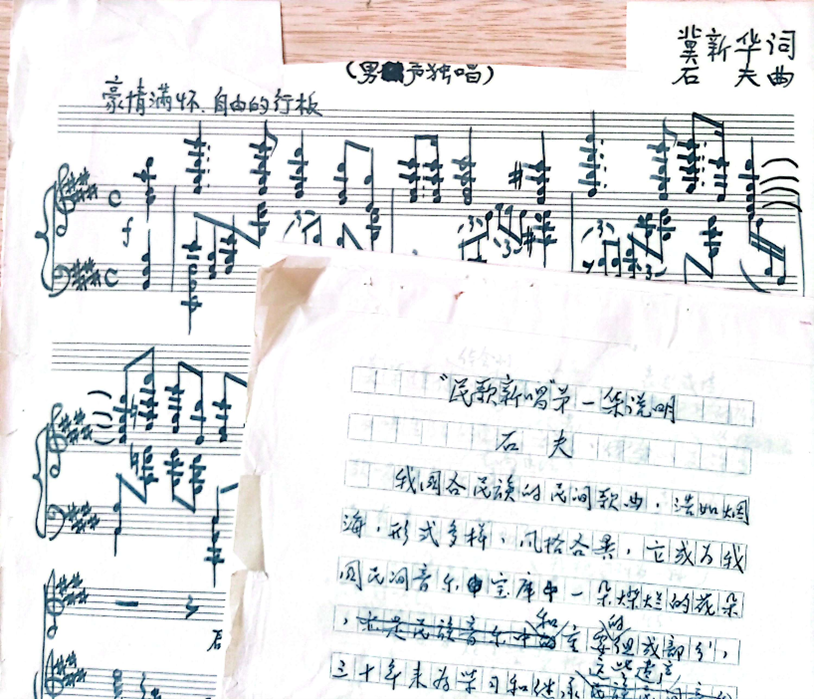 冀新华词
石夫曲
(男声独唱)
豪情满怀.自由的行板
f
3
3
3
3
石
"民歌新唱"第一集说明
石夫
我国各民族的民间歌曲,浩如烟
海,形式多样,风格各异,它成为我
国民间音乐宝库中一朵灿烂的花朵
,亦是民族音乐中的主要组成部分,
和 的
三十年来为学习和继承
这些遗产